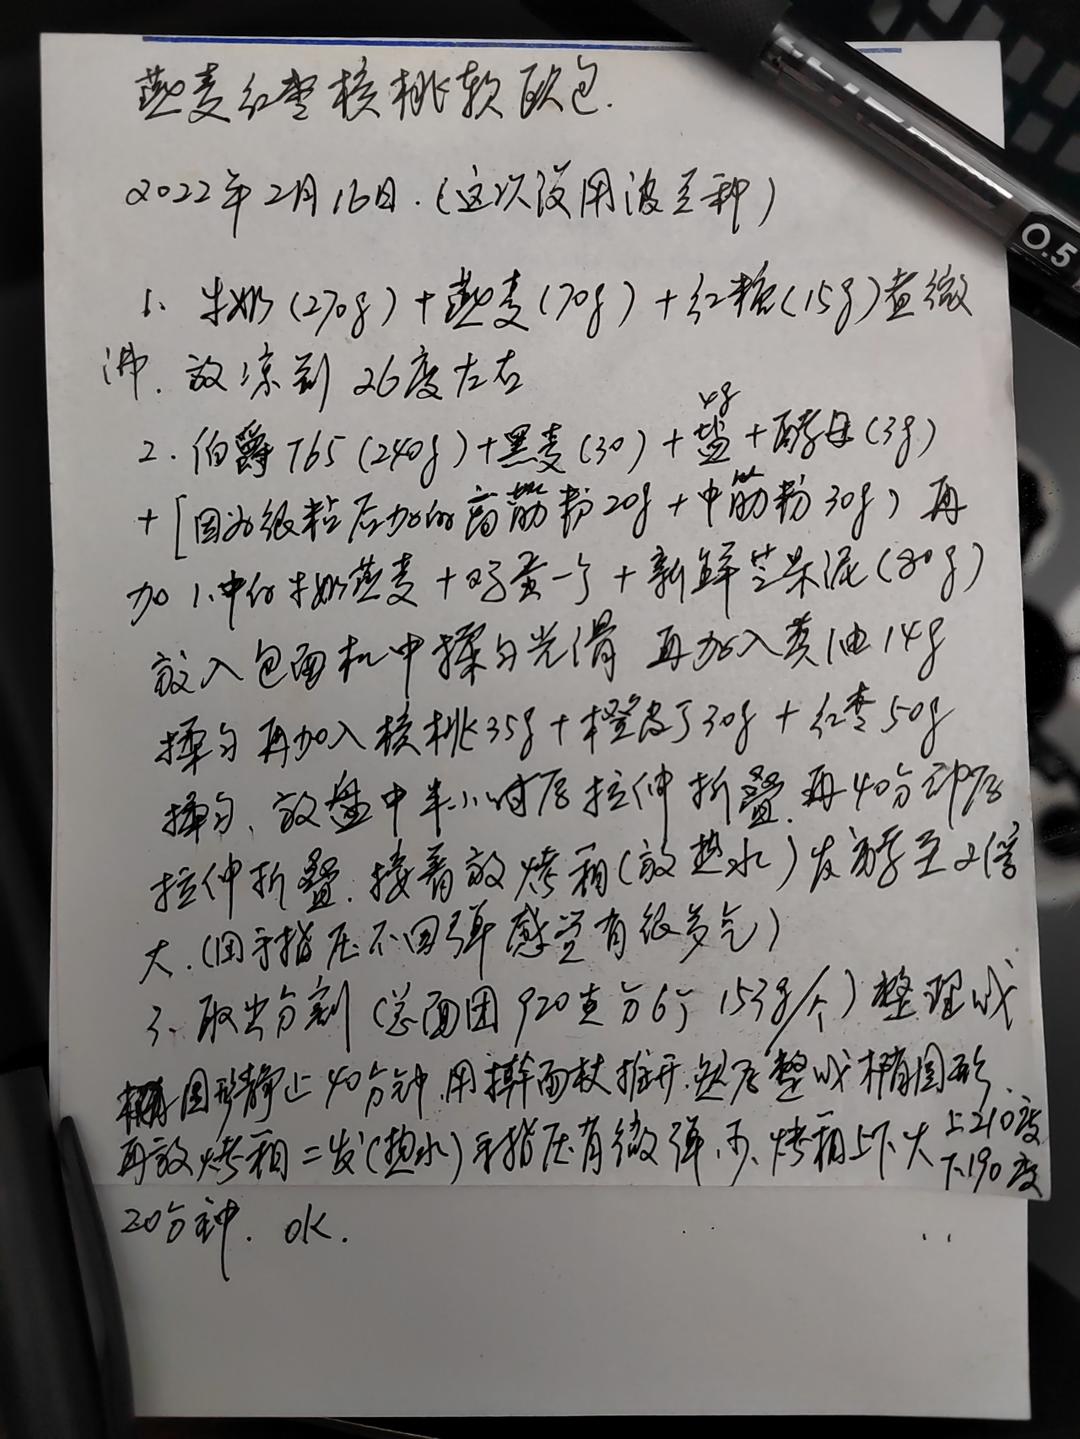 燕麦红枣核桃软欧包.
2022年2月16日.(这次没用波兰种)
1、牛奶(270g)+燕麦(70g)+红糖(15g)煮微
沸.放凉到26度左右
4g
2.伯爵T65(240g)+黑麦(30)+盐+酵母(3g)
+[因为很粘后加的高筋粉20g+中筋粉30g)再
加1、中的牛奶燕麦+鸡蛋一个+新鲜芒果泥(80g)
放入包面机中揉匀光滑 再加入黄油14g
揉匀再加入核桃35g+橙皮丁30g+红枣50g
揉匀、放盘中半小时后拉伸折叠.再40分钟后
拉伸折叠.接着放烤箱(放热水)发酵至2倍
大.(用手指压不回弹感觉有很多气)
3、取出分割(总面团920克分6个153g/个)整理成
圆形静止40分钟.用擀面杖推开.然后整成椭圆形.
再放烤箱二发(热水)手指压有微弹.烤箱上下火 上210度
下190度
20分钟. OK.
0.5